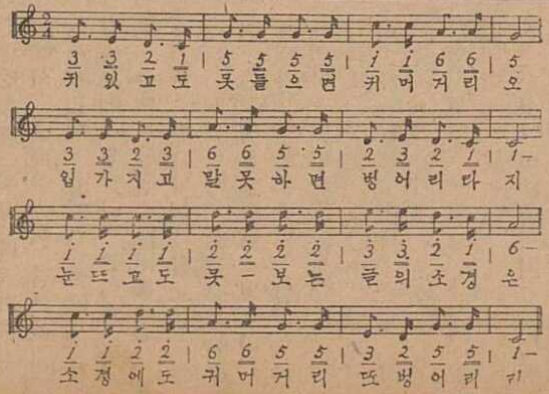 2/4
3 3 2 1 | 5 5 5 5 | i i 6 6 | 5
귀 있고도 못들으면 귀머거리오
3 3 2 3 | 6 6 5 5 | 2 3 2 1 | 1 -
입가지고 말못하면 벙어리라지
i i i i | 2 2 2 2 | 3 3 2 1 | 6 -
눈뜨고도 못ー보는 글의소경은
i i 2 2 | 6 6 5 5 | 3 2 5 5 | 1 -
소경에도 귀머거리 또벙어리라